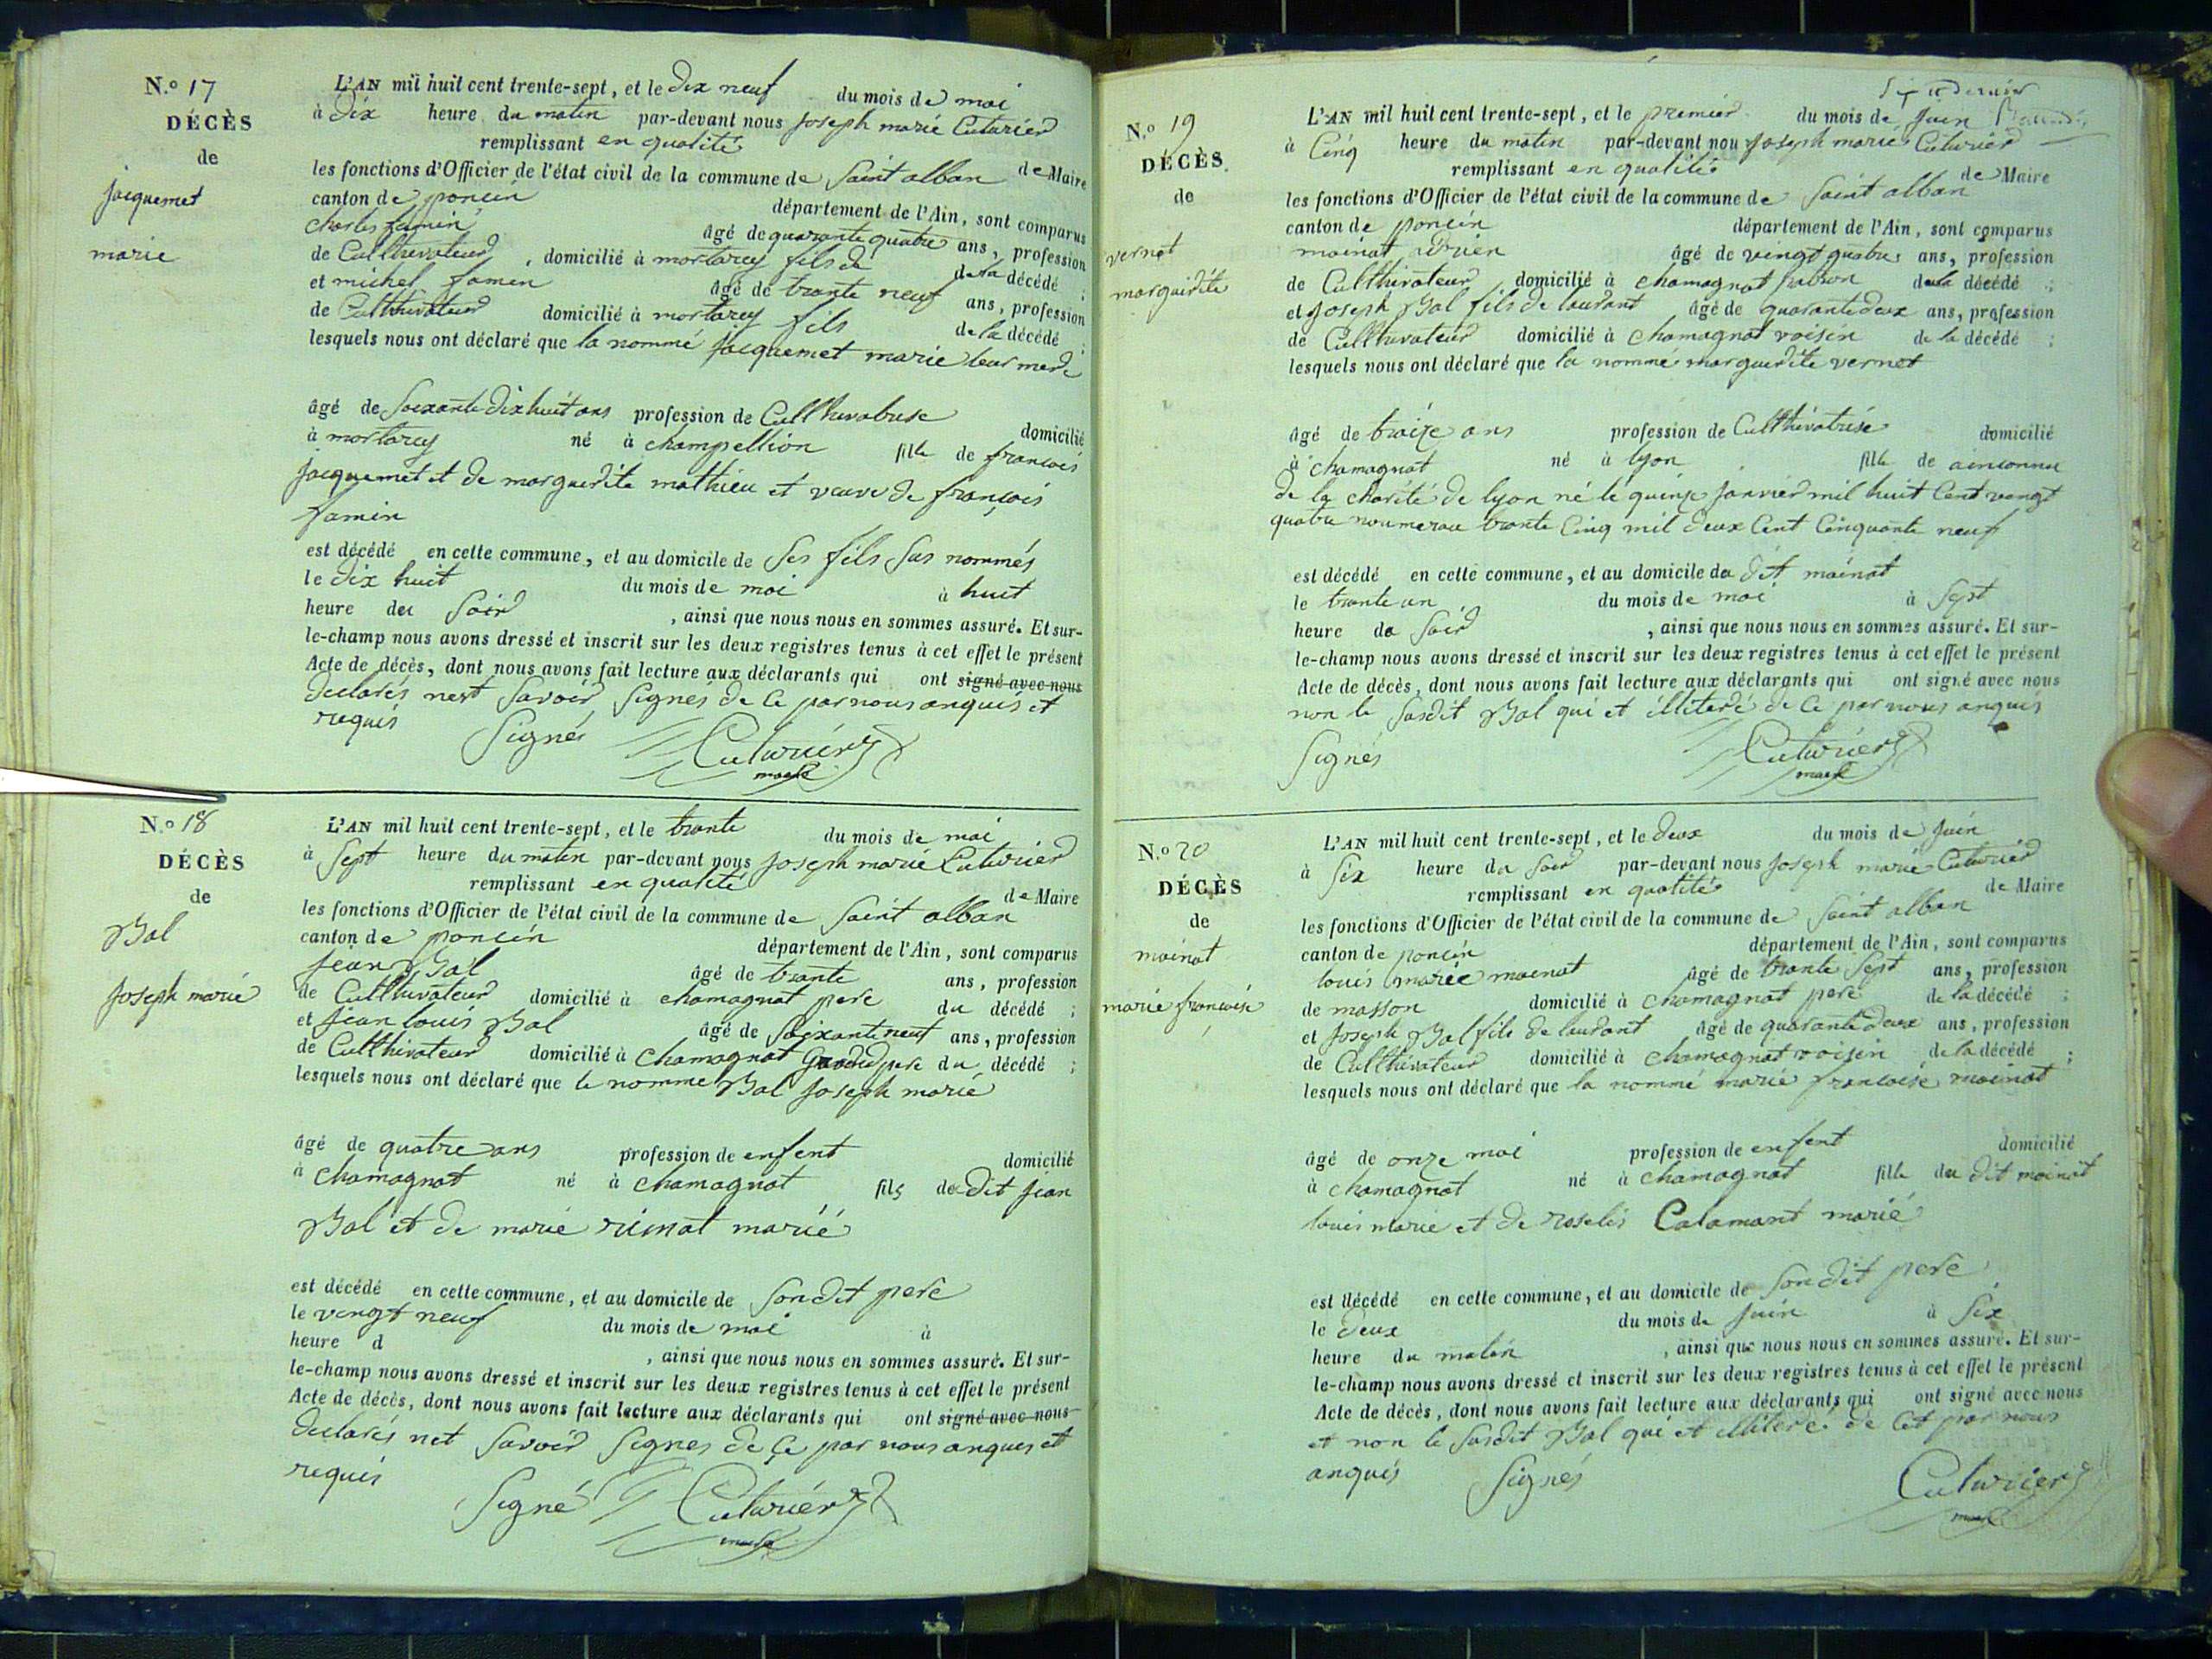 N.o 17
DÉCÈS
de
jacquemet
marie
L'AN mil huit cent trente-sept, et le dix neuf du mois de mai
à dix heure du matin par-devant nous joseph marie Cuturier
remplissant en qualité de Maire
les fonctions d'Officier de l'état civil de la commune de Saint alban
canton de poncin département de l'Ain, sont comparus
charles famin âgé de quarante quatre ans, profession
de Cultthivateur, domicilié à mortarey fils de de la décédé ;
et michel famin âgé de trante neuf ans, profession
de Cultthivateur domicilié à mortarey fils de la décédé ;
lesquels nous ont déclaré que la nommé jacquemet marie leur merde
âgé de Soixante dix huit ans profession de Cultthivatrise domicilié
à mortarey né à champellion fille de francois
jacquemet et de marguerite mathieu et veuve de françois
famin
est décédé en cette commune, et au domicile de Ses fils Sus nommés
le dix huit du mois de mai à huit
heure du Soir , ainsi que nous nous en sommes assuré. Et sur-
le-champ nous avons dressé et inscrit sur les deux registres tenus à cet effet le présent
Acte de décès, dont nous avons fait lecture aux déclarants qui ont signé avec nous
declarés nest Savoir Signés de Ce par nous anquis et
requis Signés Cuturier
maire
N.o 18
DÉCÈS
de
Bal
joseph marie
L'AN mil huit cent trente-sept, et le trante du mois de mai
à Sept heure du matin par-devant nous joseph marie Cuturier
remplissant en qualité de Maire
les fonctions d'Officier de l'état civil de la commune de Saint alban
canton de poncin département de l'Ain, sont comparus
jean Bal âgé de trante ans, profession
de Cultthivateur domicilié à chamagnat pere du décédé ;
et jean louis Bal âgé de Soixante neuf ans, profession
de Cultthivateur domicilié à Chamagnat Grand pere du décédé ;
lesquels nous ont déclaré que le nomme Bal joseph marie
âgé de quatre ans profession de enfent domicilié
à chamagnat né à chamagnat fils de dit jean
Bal et de marie rimat marié
est décédé en cette commune, et au domicile de Son dit pere
le vengt neuf du mois de mai à
heure d , ainsi que nous nous en sommes assuré. Et sur-
le-champ nous avons dressé et inscrit sur les deux registres tenus à cet effet le présent
Acte de décès, dont nous avons fait lecture aux déclarants qui ont signé avec nous
declarés net Savoir Signés de Ce par nous anques et
requis Signé Cuturier
maire
N.o 19
DÉCÈS
de
vernet
marguirite
L'AN mil huit cent trente-sept, et le premier du mois de juin
à Cinq heure du matin par-devant nou joseph marie Cuturier
remplissant en qualité de Maire
les fonctions d'Officier de l'état civil de la commune de Saint alban
canton de poncin département de l'Ain, sont comparus
moinat âgé de vingt quatre ans, profession
de Cultthivateur domicilié à chamagnat patron de la décédé ;
et joseph Bal fils de laurant âgé de quarante deux ans, profession
de Cultthivateur domicilié à chamagnat voisin de la décédé ;
lesquels nous ont déclaré que la nommé marguerite vernet
âgé de traize ans profession de Cultthivatrise domicilié
à chamagnat né à lyon fille de ainconnu
de la charité de lyon né le quinze janvier mil huit Cent vengt
quatre noumerau trante Cinq mil deux Cent Cinquante neuf
est décédé en cette commune, et au domicile du dit moinat
le trante un du mois de mai à Sept
heure du Soir , ainsi que nous nous en sommes assuré. Et sur-
le-champ nous avons dressé et inscrit sur les deux registres tenus à cet effet le présent
Acte de décès, dont nous avons fait lecture aux déclarants qui ont signé avec nous
non le Susdit Bal qui et illiteré de Ce par nous anquis
Signés Cuturier
maire
N.o 20
DÉCÈS
de
moinat
marie francoise
L'AN mil huit cent trente-sept, et le deux du mois de juin
à Six heure du Soir par-devant nous joseph marie Cuturier
remplissant en qualité de Maire
les fonctions d'Officier de l'état civil de la commune de Saint alban
canton de poncin département de l'Ain, sont comparus
louis marie moinat âgé de trante Sept ans, profession
de masson domicilié à chamagnat pere de la décédé ;
et joseph Bal fils de laurant âgé de quarante deux ans, profession
de Cultthivateur domicilié à chamagnat voisin de la décédé ;
lesquels nous ont déclaré que la nommé marie francoise moinat
âgé de onze moi profession de enfent domicilié
à chamagnat né à chamagnat fille du dit moinat
louis marie et de roselie Calamant marié
est décédé en cette commune, et au domicile de Son dit pere
le deux du mois de juin à Six
heure du matin , ainsi que nous nous en sommes assuré. Et sur-
le-champ nous avons dressé et inscrit sur les deux registres tenus à cet effet le présent
Acte de décès, dont nous avons fait lecture aux déclarants qui ont signé avec nous
et non le Susdit Bal qui et illiteré de Cet par nous
anquis Signés Cuturier
maire